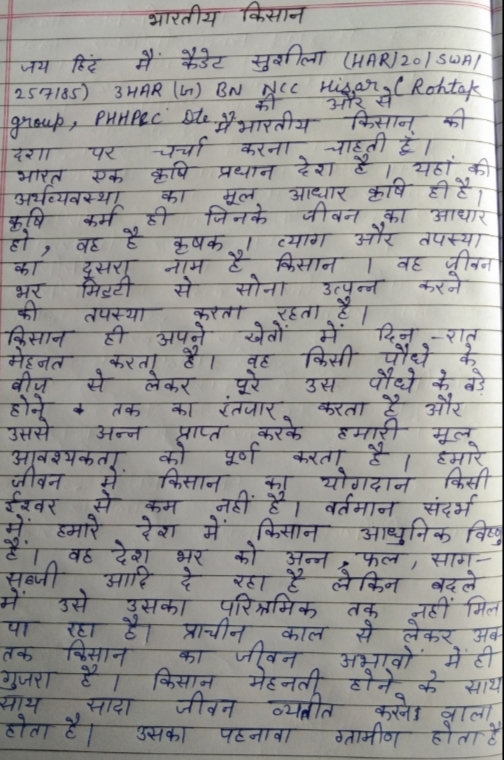 भारतीय किसान
जय हिंद मैं कैडेट सुशीला (HAR/20/SWA/
257185) 3HAR (W) BN NCC Hisar (Rohtak
group, PHHP&C Dte की ओर से
मैं भारतीय किसान की
दशा पर चर्चा करना चाहती हूं।
भारत एक कृषि प्रधान देश है। यहां की
अर्थव्यवस्था का मूल आधार कृषि ही है।
कृषि कर्म ही जिनके जीवन का आधार
हो, वह है कृषक। त्याग और तपस्या
का दूसरा नाम है किसान। वह जीवन
भर मिट्टी से सोना उत्पन्न करने
की तपस्या करता रहता है।
किसान ही अपने खेतों में दिन-रात
मेहनत करता है। वह किसी पौधे के
बीज से लेकर पूरे उस पौधे के बड़े
होने तक का इंतजार करता है और
उससे अन्न प्राप्त करके हमारी मूल
आवश्यकता को पूर्ण करता है। हमारे
जीवन में किसान का योगदान किसी
ईश्वर से कम नहीं है। वर्तमान संदर्भ
में हमारे देश में किसान आधुनिक विष्णु
है। वह देश भर को अन्न, फल, साग-
सब्जी आदि दे रहा है लेकिन बदले
में उसे उसका परिश्रमिक तक नहीं मिल
पा रहा है। प्राचीन काल से लेकर अब
तक किसान का जीवन अभावों में ही
गुजरा है। किसान मेहनती होने के साथ
साथ सादा जीवन व्यतीत करने वाला
होता है। उसका पहनावा ग्रामीण होता है